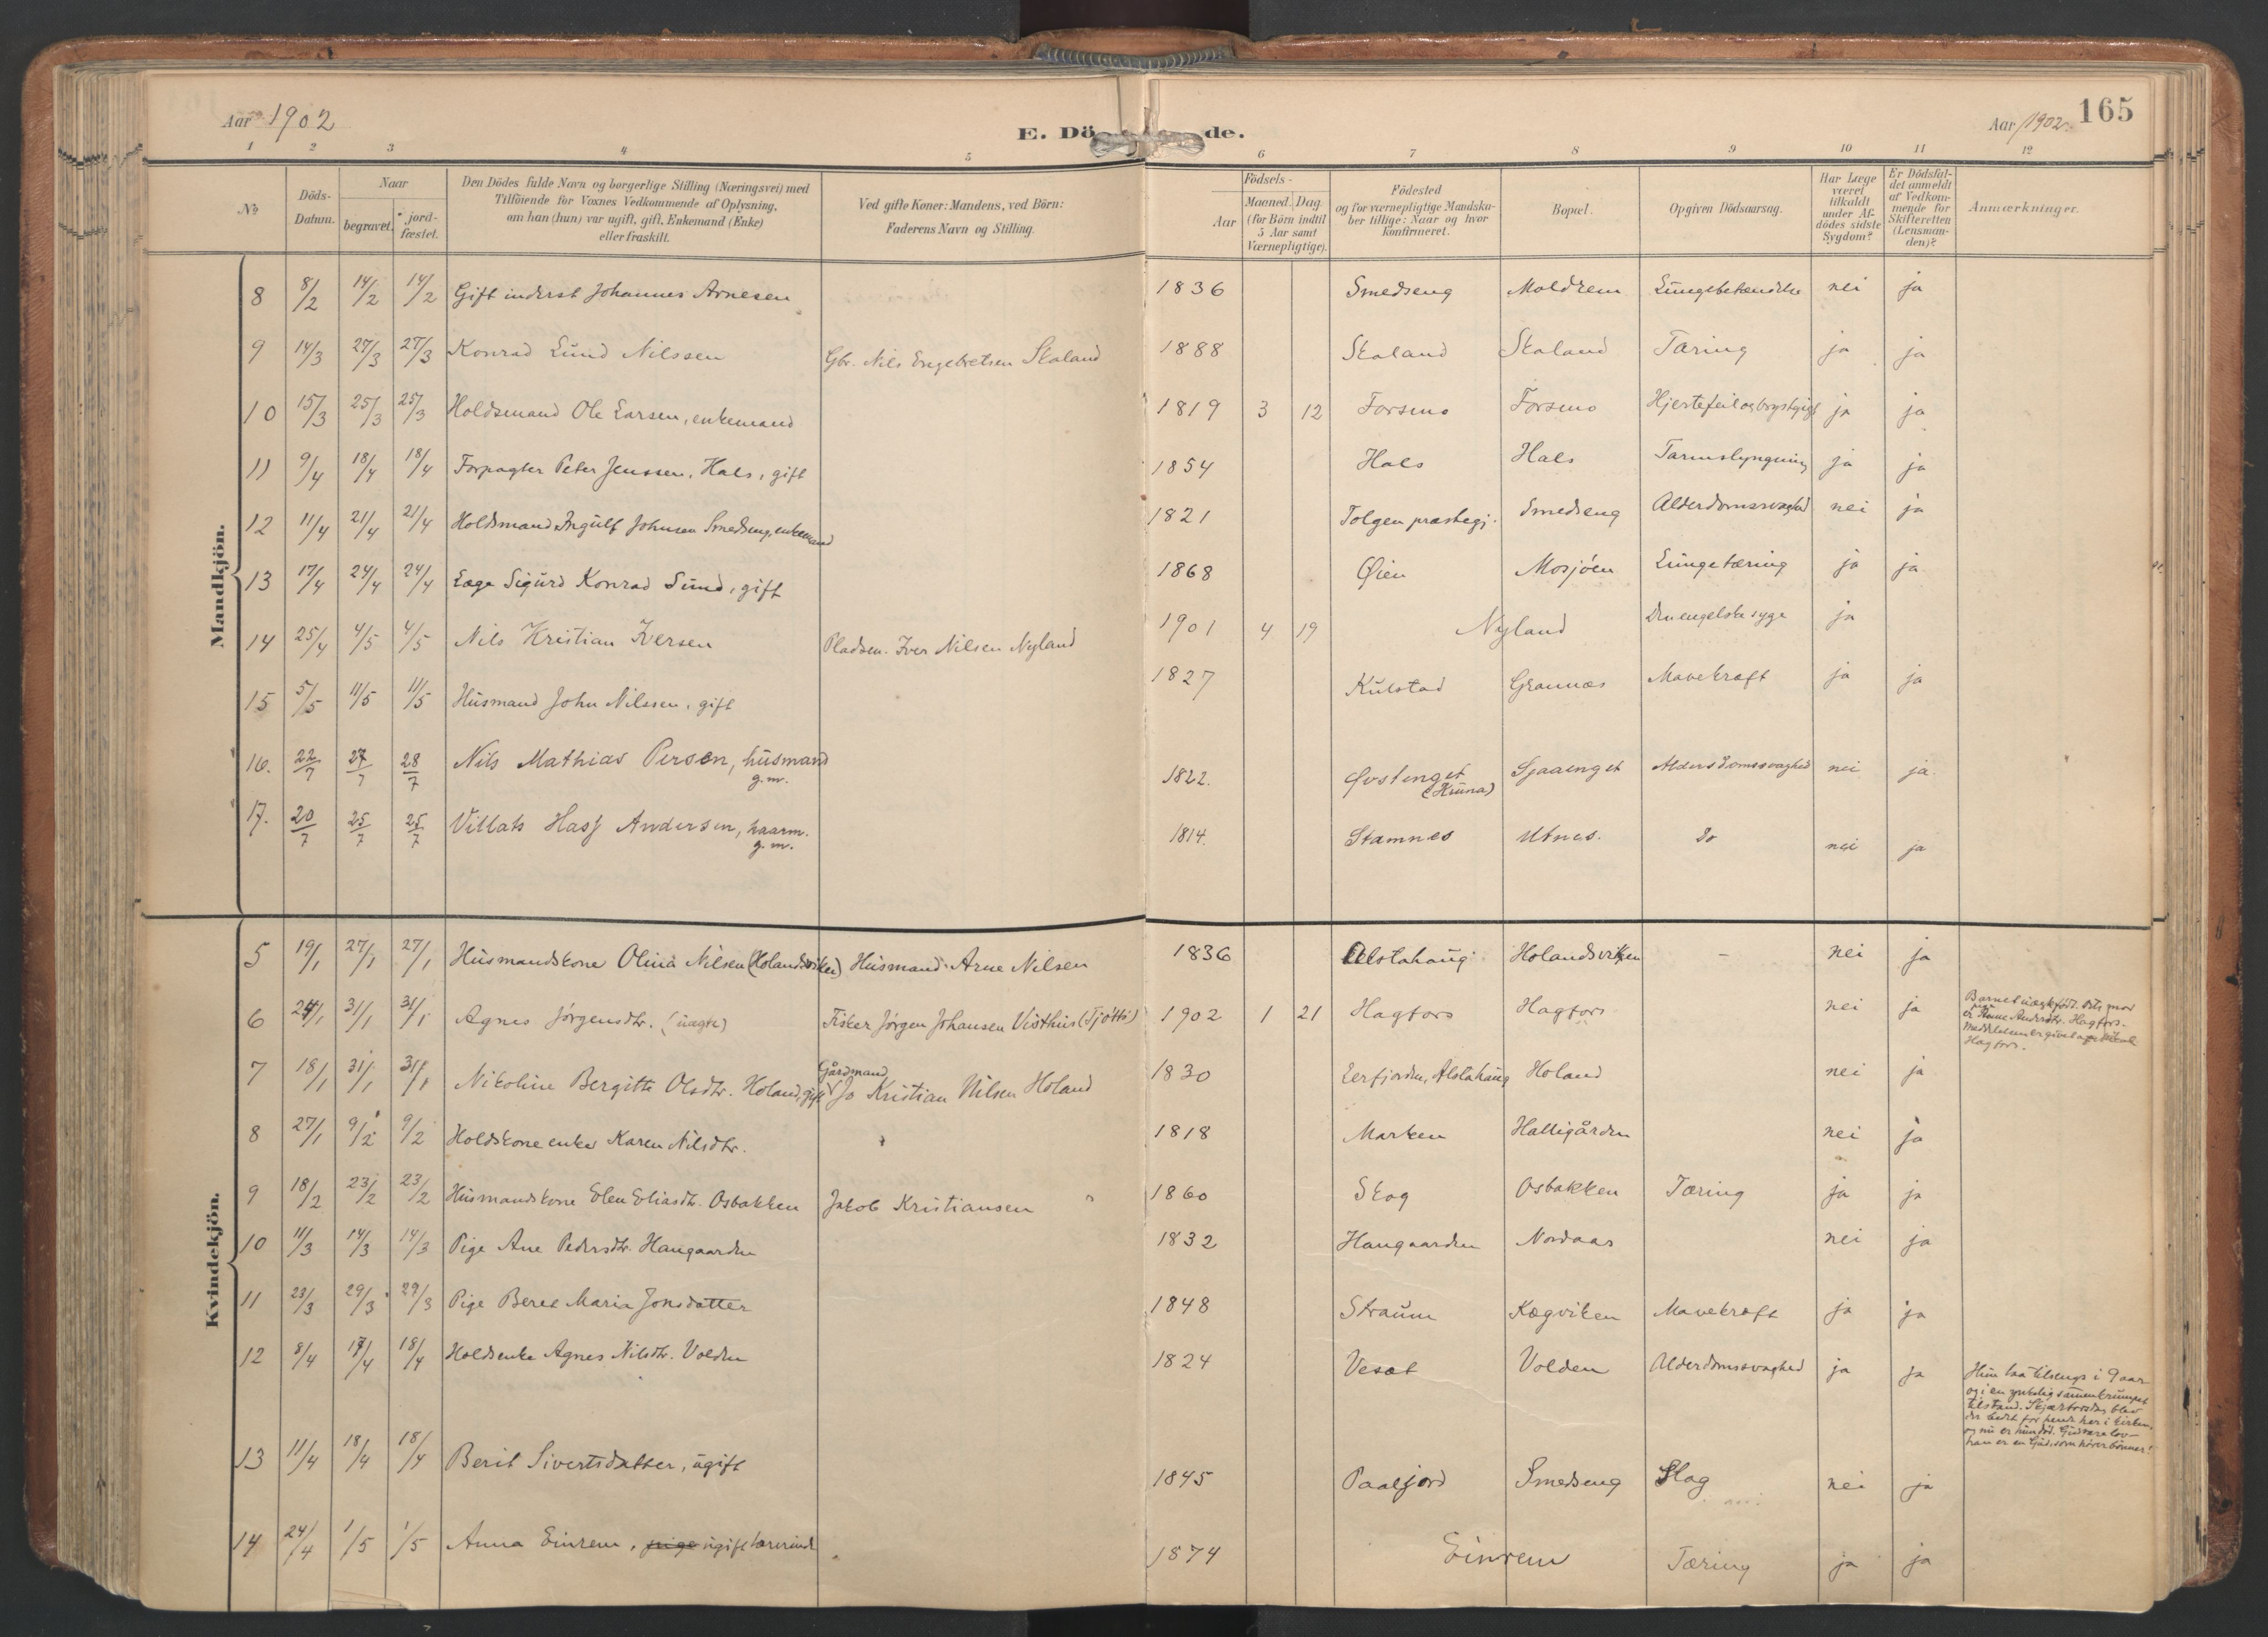 Aar 1902
E. Dö de.
Aar 1902.
165
1 2 3 4 5 6 7 8 9 10 11 12
No
Döds-Datum.
Naar
begravet.
* jord-fæstet.
Den Dödes fulde Navn og borgerlige Stilling (Næringsvei) med
Tilföiende for Voxnes Vedkommende af Oplysning,
om han (hun) var ugift, gift, Enkemand (Enke)
eller fraskilt.
Ved gifte Koner: Mandens, ved Börn:
Faderens Navn og Stilling.
Födsels-
Aar
Maaned. Dag
(for Börn indtil
5 Aar samt
Værnepligtige).
Födested
og for værnepligtige Mandska-
ber tillige: Naar og hvor
konfirmeret.
Bopæl.
Opgiven Dödsaarsag.
Har Læge
været
tilkaldt
under Af-
dödes sidste
Sygdom?
Er Dödsfal-
det anmeldt
af Vedkom-
mende for
Skifteretten
(Lensman-
den)?
Anmærkninger.
Mandkjön.
8 8/2 14/2 14/2 Gift inderst Johannes Arnesen 1836 Smedseng Moldrem Lungebetændelse nei ja
9 14/3 27/3 27/3 Konrad Lund Nilssen Gbr. Nils Engebretsen Skaland 1888 Skaland Skaland Tæring ja ja
10 15/3 25/3 25/3 Holdsmand Ole Larsen, enkemand 1819 3 12 Forsmo Forsmo Hjertefeil og brystgigt ja ja
11 9/4 18/4 18/4 Forpagter Peter Jenssen, Hals, gift 1854 Hals Hals Tarmslyngning ja ja
12 11/4 21/4 21/4 Holdsmand Ingulf Johnsen Smedseng, enkemand 1821 Tolgen præstegj. Smedseng Alderdomssvaghed nei ja
13 17/4 24/4 24/4 Læge Sigurd Konrad Sund, gift 1868 Øien Mosjöen Lungetæring ja ja
14 25/4 4/5 4/5 Nils Kristian Iversen Pladsm. Iver Nilsen Nyland 1901 4 19 Nyland Den engelske syge ja
15 5/5 11/5 11/5 Husmand John Nilssen, gift 1827 Kulstad Grannæs Mavekræft ja ja
16. 22/7 27/7 28/7 Nils Mathias Persen, husmand
g.m. 1822. Øvstenget
(Hruna) Sjaaenget Aldersdomssvaghed nei ja
17. 20/7 25/7 25/7 Villats Hasf Andersen, kaarm.
g.m. 1814. Stamnes Utnes. Do nei ja
Kvindekjön.
5 19/1 27/1 27/1 Husmandskone Olina Nilsen (Holandsviken) Husmand Arne Nilsen 1836 Alstahaug Holandsviken - nei ja
6 24/1 31/1 31/1 Agnes Jørgensdtr. (uægte) Fisker Jørgen Johansen Visthus (Tjøtta) 1902 1 21 Hagfors Hagfors nei ja
Barnet uægtefødt. Dets mor
er pige Anne Andersdtr. Hagfors.
Meddelelsen er givet af
Hagfors.
7 18/1 31/1 31/1 Nikoline Bergitte Olsdtr. Holand, gift Gårdmand
Jo Kristian Nilsen Holand 1830 Lerfjorden, Alstahaug Holand nei ja
8 27/1 9/2 9/2 Holdskone enke Karen Nilsdtr. 1818 Marken Halligården nei ja
9 18/2 23/2 23/2 Husmandskone Elen Eliasdtr. Osbakken Jakob Kristiansen " 1860 Skog Osbakken Tæring ja ja
10 11/3 14/3 14/3 Pige Ane Pedersdtr. Haugaarden 1832 Haugaarden Nordaas nei ja
11 23/3 29/3 29/3 Pige Beret Maria Jonsdatter 1848 Straum Kægviken Mavekræft ja ja
12 8/4 17/4 18/4 Holdsenke Agnes Nilsdtr. Volden 1824 Vesat Volden Alderdomssvaghed ja ja
Hun laa tilsengs i 9 aar
og i en ynkelig sammenkrumpet
tilstand. Skjærtorsdag blev
der bedt for hende her i kirken,
og nu er hun død. Gud være lov-
han er en Gud, som hører bønner!
13 11/4 18/4 18/4 Berit Sivertsdatter, ugift 1845 Paalfjord Smedseng Slag nei ja
14 24/4 1/5 1/5 Anna Einrem, pige ugift lærerinde 1874 Einrem Tæring ja ja